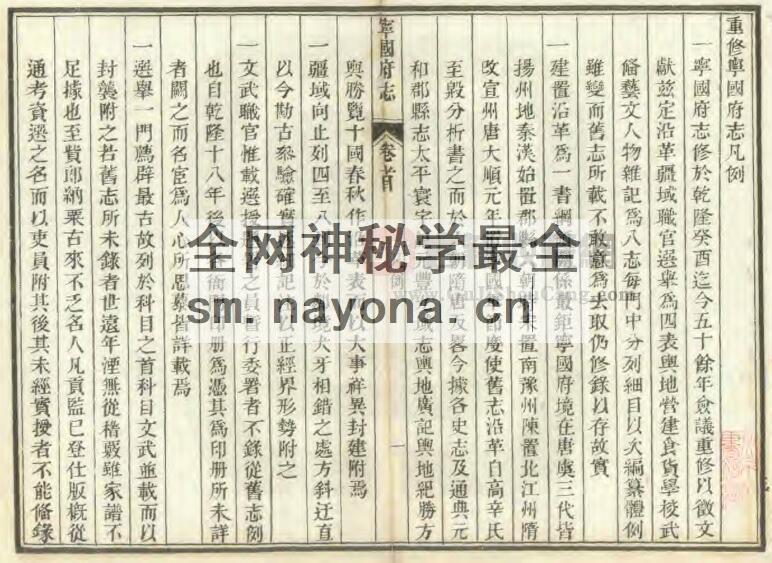 重修寧國府志凡例
一寧國府志修於乾隆癸酉迄今五十餘年僉議重修以徵文
獻兹定沿革疆域職官選舉爲四表輿地營建食貨學校武
備藝文人物雜記爲八志每門中分列細目以次編纂體例
雖變而舊志所載不敢意爲去取仍修錄以存故實
一建置沿革爲一書綱
寧國府境在唐虞三代皆
揚州地秦漢始置郡縣
朝宋置南豫州陳置北江州隋
改宣州唐大順元年
節度使舊志沿革自高辛氏
至毀分析書之而於
隋唐反畧今據各史志及通典元
和郡縣志太平寰宇
元豐
域志輿地廣記輿地紀勝方
寧國府志
卷首
凡例
一
輿勝覽十國春秋作
表而以大事祥異封建附焉
一疆域向止列四至八
於
境犬牙相錯之處方斜迂直
以今勘古參驗確實
記以正經界形勢附之
一文武職官惟載選授
之員
行委署者不錄從舊志例
也自乾隆十八年後
印册爲憑其爲印册所未詳
者闕之而名宦爲人心所思慕皆詳載焉
一選舉一門薦辟最古故列於科目之首科目文武並載而以
封襲附之若舊志所未錄者世遠年湮無從稽覈雖家譜不
足據也至貲郎納粟古來不乏名人凡貢監已登仕版概從
通考資選之名而以吏員附其後其未經實授者不能備錄
全网神秘学最全
sm.nayona.cn